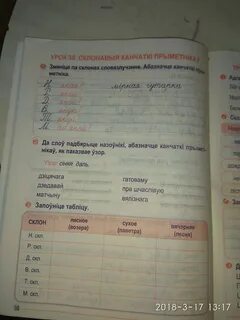 УРОК 38. СКЛОНАВЫЯ КАНЧАТКІ ПРЫМЕТНІКАЎ
1 Змяніце па склонах словазлучэнне. Абазначце канчаткі прыметніка.
Н
Р
Д
В
Т
М
2 Да слоў падбярыце назоўнікі, абазначце канчаткі прыметнікаў, як паказвае ўзор.
Узор: сіняя даль.
дзіцячага
гатоваму
дзедавай
пра шчаслівую
матчыну
вялізнага
3 Запоўніце табліцу.
СКЛОН
лясное (возера)
сухое (паветра)
вячэрняя (песня)
Н. скл.
Р. скл.
Д. скл.
В. скл.
Т. скл.
М. скл.
2018-3-17 13:17